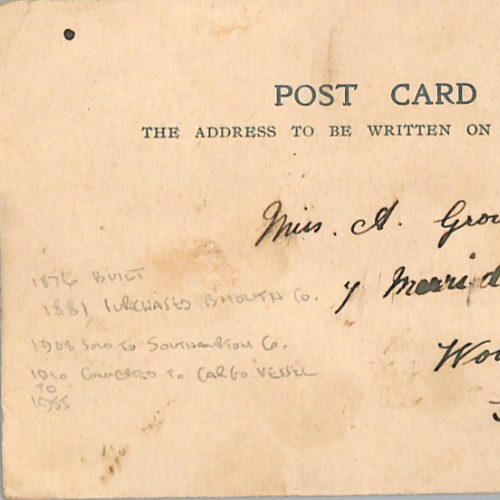 POST CARD
THE ADDRESS TO BE WRITTEN ON
Miss. A. Grou
7 Merrid
Wo
1876 BUILT
1881 PURCHASED B'MOUTH Co.
1908 SOLD TO SOUTHAMPTON Co.
1920 CONVERTED TO CARGO VESSEL
TO
1955